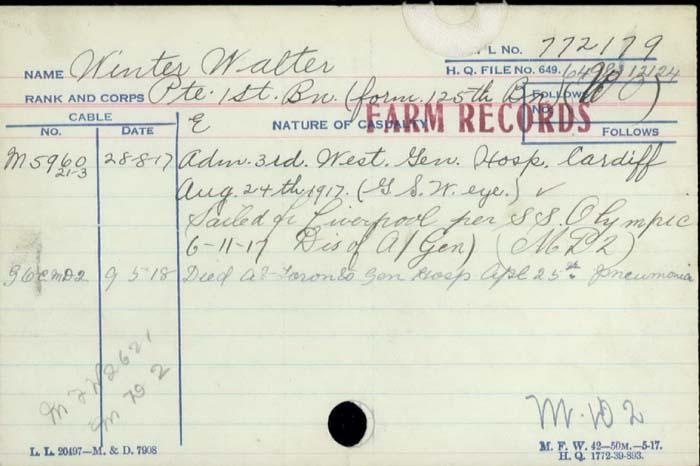 REG'L NO. 772179
NAME Winter Walter
H. Q. FILE NO. 649.
RANK AND CORPS Pte. 1st. Bn. (form. 125th Bn)
FOLLOWS
NO.
CABLE
E
NATURE OF CASUALTY
FARM RECORDS
FOLLOWS
NO. DATE
M5960 28-8-17 Adm. 3rd. West. Gen. Hosp. Cardiff
21-3
Aug. 24th 1917. (G.S.W. eye.) ✓
Sailed fr Liverpool per S.S. Olympic
6-11-17 Dis of A/Gen) (MD2)
9 5 18 Died at Toronto Gen Hosp Apl 25th Pneumonia
M 222621
M D 2
M.D 2
L. L. 20497—M. & D. 7908
M. F. W. 42—50M.—5-17.
H. Q. 1772-39-893.